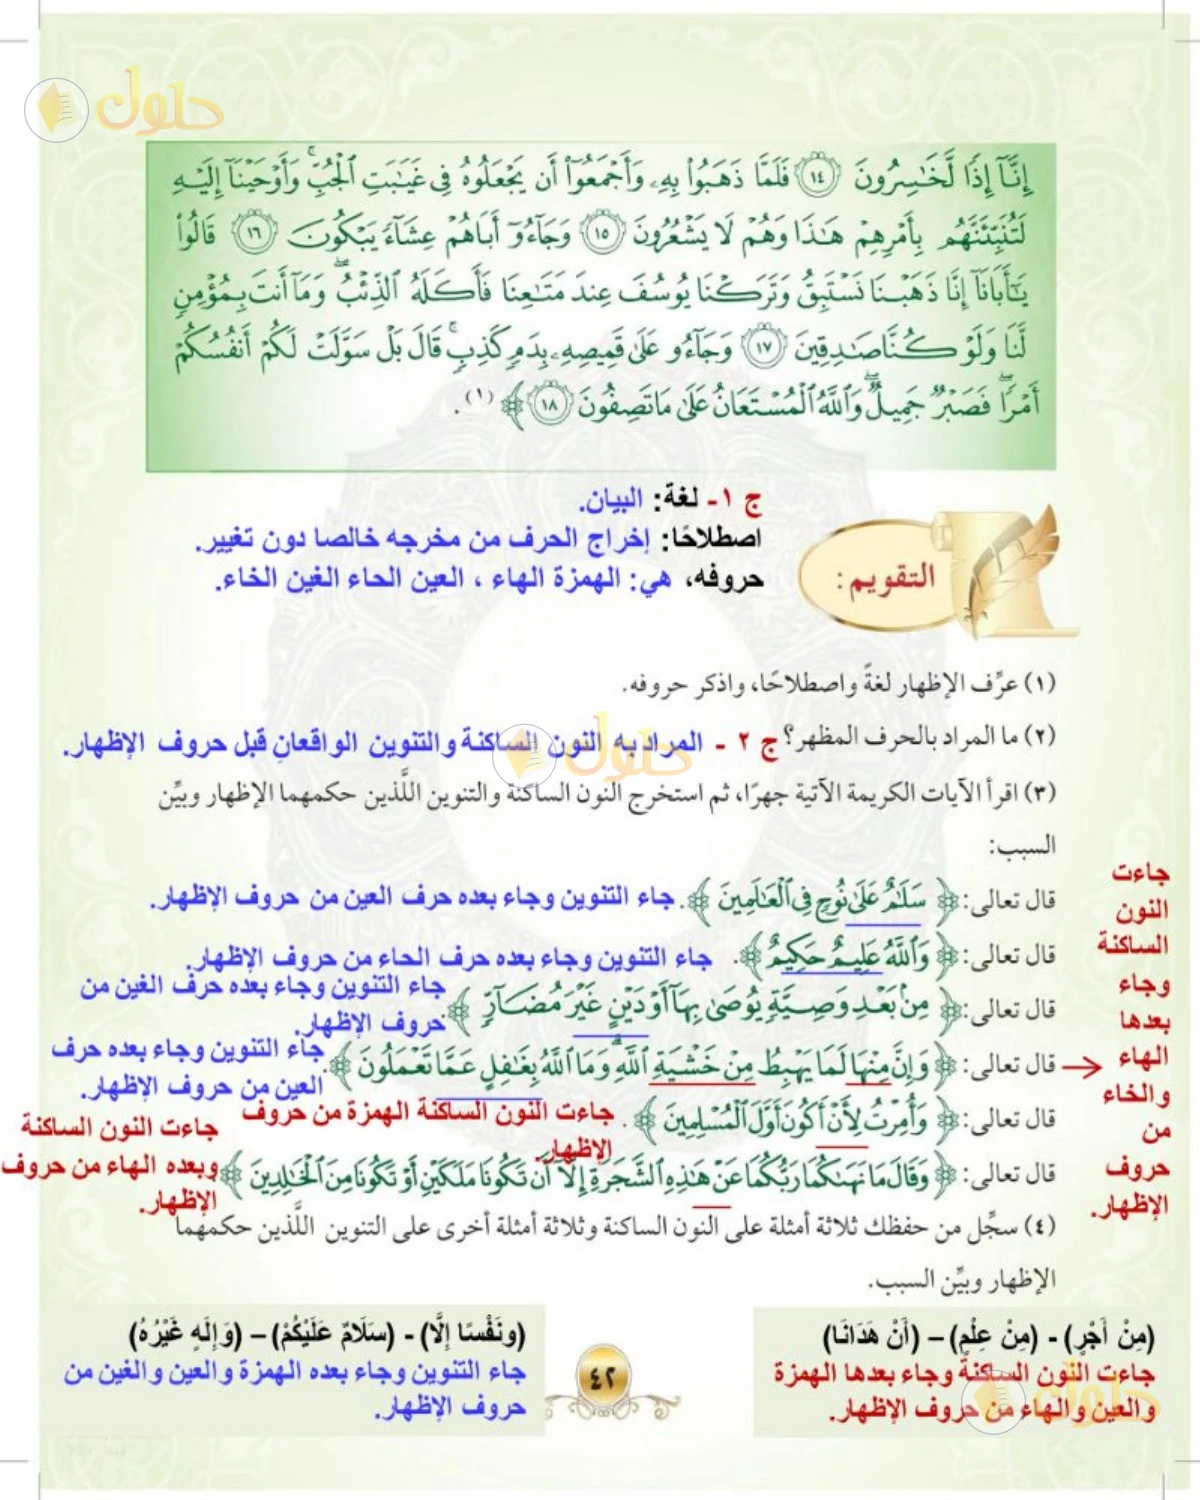 حلول
إِنَّآ إِذًا لَّخَٰسِرُونَ ١٤ فَلَمَّا ذَهَبُوا۟ بِهِۦ وَأَجْمَعُوٓا۟ أَن يَجْعَلُوهُ فِى غَيَٰبَتِ ٱلْجُبِّ ۚ وَأَوْحَيْنَآ إِلَيْهِ
لَتُنَبِّئَنَّهُم بِأَمْرِهِمْ هَٰذَا وَهُمْ لَا يَشْعُرُونَ ١٥ وَجَآءُوٓ أَبَاهُمْ عِشَآءً يَبْكُونَ ١٦ قَالُوا۟
يَٰٓأَبَانَآ إِنَّا ذَهَبْنَا نَسْتَبِقُ وَتَرَكْنَا يُوسُفَ عِندَ مَتَٰعِنَا فَأَكَلَهُ ٱلذِّئْبُ ۖ وَمَآ أَنتَ بِمُؤْمِنٍ
لَّنَا وَلَوْ كُنَّا صَٰدِقِينَ ١٧ وَجَآءُو عَلَىٰ قَمِيصِهِۦ بِدَمٍ كَذِبٍ ۚ قَالَ بَلْ سَوَّلَتْ لَكُمْ أَنفُسُكُمْ
أَمْرًا ۖ فَصَبْرٌ جَمِيلٌ ۖ وَٱللَّهُ ٱلْمُسْتَعَانُ عَلَىٰ مَا تَصِفُونَ ١٨ ﴾ (١).
ج ١- لغة: البيان.
اصطلاحًا: إخراج الحرف من مخرجه خالصا دون تغيير.
حروفه، هي: الهمزة الهاء ، العين الحاء الغين الخاء.
التقويم:
(١) عرِّف الإظهار لغةً واصطلاحًا، واذكر حروفه.
(٢) ما المراد بالحرف المظهر؟ ج ٢ - المراد به النون الساكنة والتنوين الواقعانِ قبل حروف الإظهار.
حلول
(٣) اقرأ الآيات الكريمة الآتية جهرًا، ثم استخرج النون الساكنة والتنوين اللَّذين حكمهما الإظهار وبيِّن
السبب:
قال تعالى: ﴿ سَلَٰمٌ عَلَىٰ نُوحٍ فِى ٱلْعَٰلَمِينَ ﴾. جاء التنوين وجاء بعده حرف العين من حروف الإظهار.
قال تعالى: ﴿ وَٱللَّهُ عَلِيمٌ حَكِيمٌ ﴾. جاء التنوين وجاء بعده حرف الحاء من حروف الإظهار.
قال تعالى: ﴿ مِنۢ بَعْدِ وَصِيَّةٍ يُوصَىٰ بِهَآ أَوْ دَيْنٍ غَيْرَ مُضَآرٍّ ﴾. جاء التنوين وجاء بعده حرف الغين من
حروف الإظهار.
قال تعالى: ﴿ وَإِنَّ مِنْهَا لَمَا يَهْبِطُ مِنْ خَشْيَةِ ٱللَّهِ ۗ وَمَا ٱللَّهُ بِغَٰفِلٍ عَمَّا تَعْمَلُونَ ﴾. جاء التنوين وجاء بعده حرف
العين من حروف الإظهار.
جاءت
النون
الساكنة
وجاء
بعدها
الهاء
والخاء
من
حروف
الإظهار.
قال تعالى: ﴿ وَأُمِرْتُ لِأَنْ أَكُونَ أَوَّلَ ٱلْمُسْلِمِينَ ﴾. جاءت النون الساكنة الهمزة من حروف
الإظهار.
قال تعالى: ﴿ وَقَالَ مَا نَهَىٰكُمَا رَبُّكُمَا عَنْ هَٰذِهِ ٱلشَّجَرَةِ إِلَّآ أَن تَكُونَا مَلَكَيْنِ أَوْ تَكُونَا مِنَ ٱلْخَٰلِدِينَ ﴾
جاءت النون الساكنة
وبعده الهاء من حروف
الإظهار.
(٤) سجِّل من حفظك ثلاثة أمثلة على النون الساكنة وثلاثة أمثلة أخرى على التنوين اللَّذين حكمهما
الإظهار وبيِّن السبب.
(مِنْ أَجْرٍ) - (مِنْ عِلْمٍ) – (أَنْ هَدَانَا)
جاءت النون الساكنةُ وجاء بعدها الهمزة
والعين والهاء من حروف الإظهار.
حلول
(ونَفْسًا إِلَّا) - (سَلَامٌ عَلَيْكُمْ) – (وَإِلَهٍ غَيْرُهُ)
جاء التنوين وجاء بعده الهمزة والعين والغين من
حروف الإظهار.
٤٢